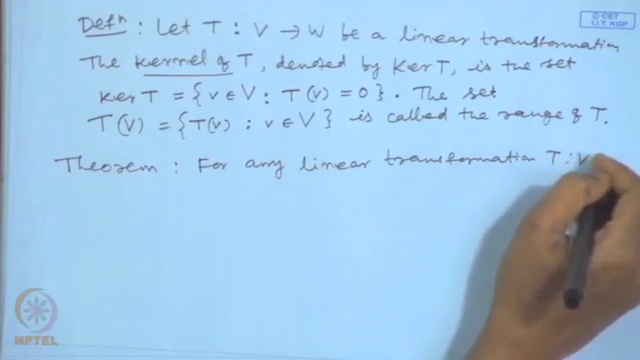 © CET
I.I.T. KGP
Defⁿ : Let T : V → W be a linear transformation
The kernel of T, denoted by Ker T, is the set
Ker T = {v ∈ V : T(v) = 0}. The set
T(V) = {T(v) : v ∈ V} is called the range of T.
Theorem : For any linear transformation T : V
NPTEL